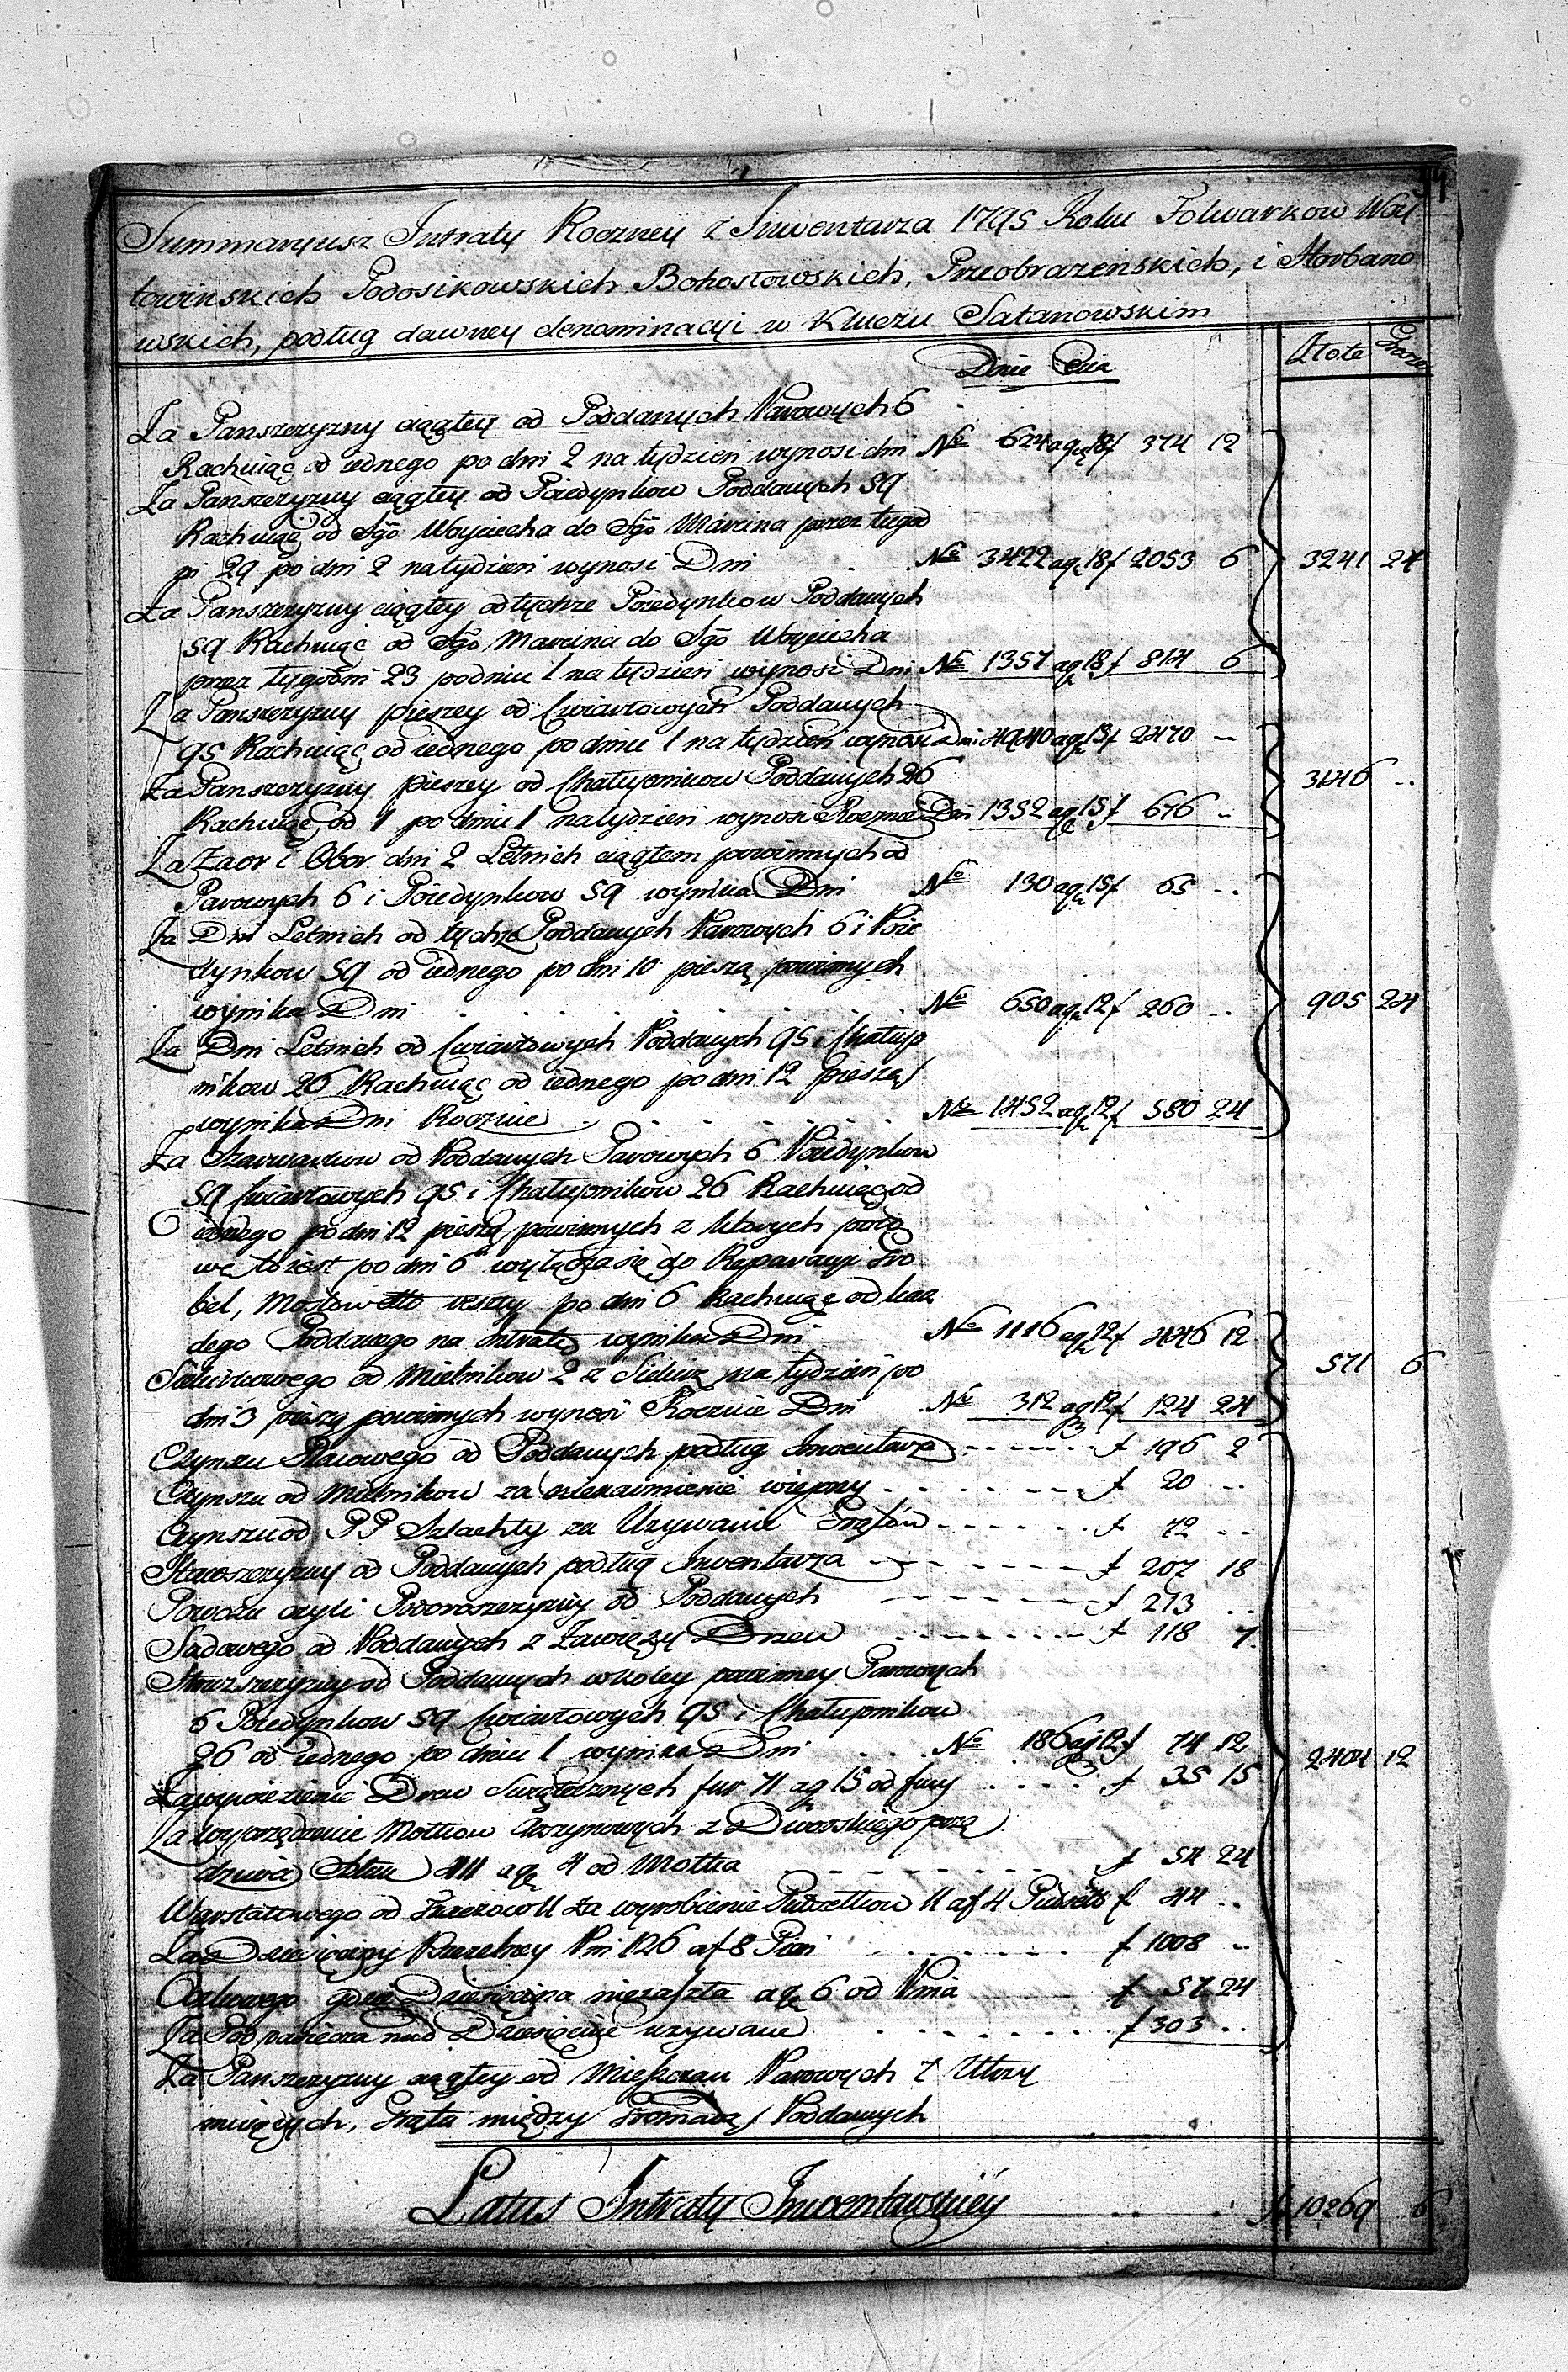 34
Summaryusz Intraty Roczney z Inwentarza 1795 Roku Folwarkow Woy
towinskich Podosikowskich, Bohostowskich, Przeobrazeńskich, i Horbano
wskich, podług dawney denominacyi w Kluczu Satanowskim
Dnie Cena Złote Grosze
Za Panszczyzny ciągłey od Poddanych Parowych 6
Rachuiąc od iednego po dni 2 na tydzień wynosi dni No 624 a gr 18 f 374 12
Za Panszczyzny ciągłey od Poiedynkow Poddanych 59
Rachuiąc od Sgo Woyciecha do Sgo Marcina przez tygod
ni 29 po dni 2 na tydzien wynosi Dni No 3422 a gr 18 f 2053 6 3241 24
Za Panszczyzny ciągłey od tychże Poiedynkow Poddanych
59 Rachuiąc od Sgo Marcina do Sgo Woyciecha
przez tygodni 23 po dniu 1 na tydzień wynosi Dni No 1357 a gr 18 f 814 6
Za Panszczyzny pieszey od Cwiartowych Poddanych
95 Rachuiąc od iednego po dniu 1 na tydzień wynosi Dni 4940 a gr 15 f 2470 --
Za Panszczyzny pieszey od Chałupnikow Poddanych 26 3146 --
Rachuiąc od 1 po dniu 1 na tydzień wynosi Rocznie Dni 1352 a gr 15 f 676 --
Za Zaor i Obor dni 2 Letnich ciągłem powinnych od
Parowych 6 i Poiedynkow 59 wynika Dni No 130 a gr 15 f 65 --
Za Dni Letnich od tychże Poddanych Parowych 6 i Poie
dynkow 59 od iednego po dni 10 pieszą powinnych
wynika Dni No 650 a gr 12 f 260 -- 905 24
Za Dni Letnich od Cwiartowych Poddanych 95 i Chałup
nikow 26 Rachuiąc od iednego po dni 12 pieszą
wynika Dni Rocznie No 1452 a gr 12 f 580 24
Za Szarwarkow od Poddanych Parowych 6 Poiedynkow
59 Cwiartowych 95 i Chałupnikow 26 Rachuiąc od
iednego po dni 12 pieszą powinnych z ktorych poło
wę to iest po dni 6 wyłącza się do Reparacyi Gro
bel, Mostow etto reszty po dni 6 Rachuiąc od każ
dego Poddanego na Intratę wynika Dni No 1116 a gr 12 f 446 12
571 6
dni 3 pieszy powinnych wynosi Rocznie Dni No 312 a gr 12 f 124 24
Czynszu Placowego od Poddanych podług Inwentarza f 196 2
Czynszu od Mielnikow za wieprzy f 20 --
Czynszu od PP Szlachty za Używanie Gruntow f 72 --
od Poddanych podług Inwentarza f 207 18
Powozu czyli Podoroszczyzny od Poddanych f 213 --
Sadowego od Poddanych z Drzew f 118 7
Strozszczyzny od Poddanych w koley powinney Parowych
6 Poiedynkow 59 Cwiartowych 95 i Chałupnikow
26 od iednego po dniu 1 wynika Dni No 186 a gr 12 f 74 12
2404 12
Za wywiezienie Drew Swiątecznych fur 71 a gr 15 od fury f 35 15
Za wyprzędzenie Motkow z Dworskiego przę
dziwa Sztuk 411 a gr 4 od Motka f 54 24
Warstatowego od Tkaczow 11 za wyrobienie Pułsetkow 11 a f 4 Pułsetk f 44 --
Za Dziesięciny Pszczelney Pni 126 a f 8 Pień f 1008 --
Oczkowego gdzie Dziesięcina niezaszła a gr 6 od Pnia f 57 24
f 303 --
Za Panszczyzny ciągłey od Mieszczan Parowych 7
Poddanych
Latus Intraty Inwentarskiey f 10269 6